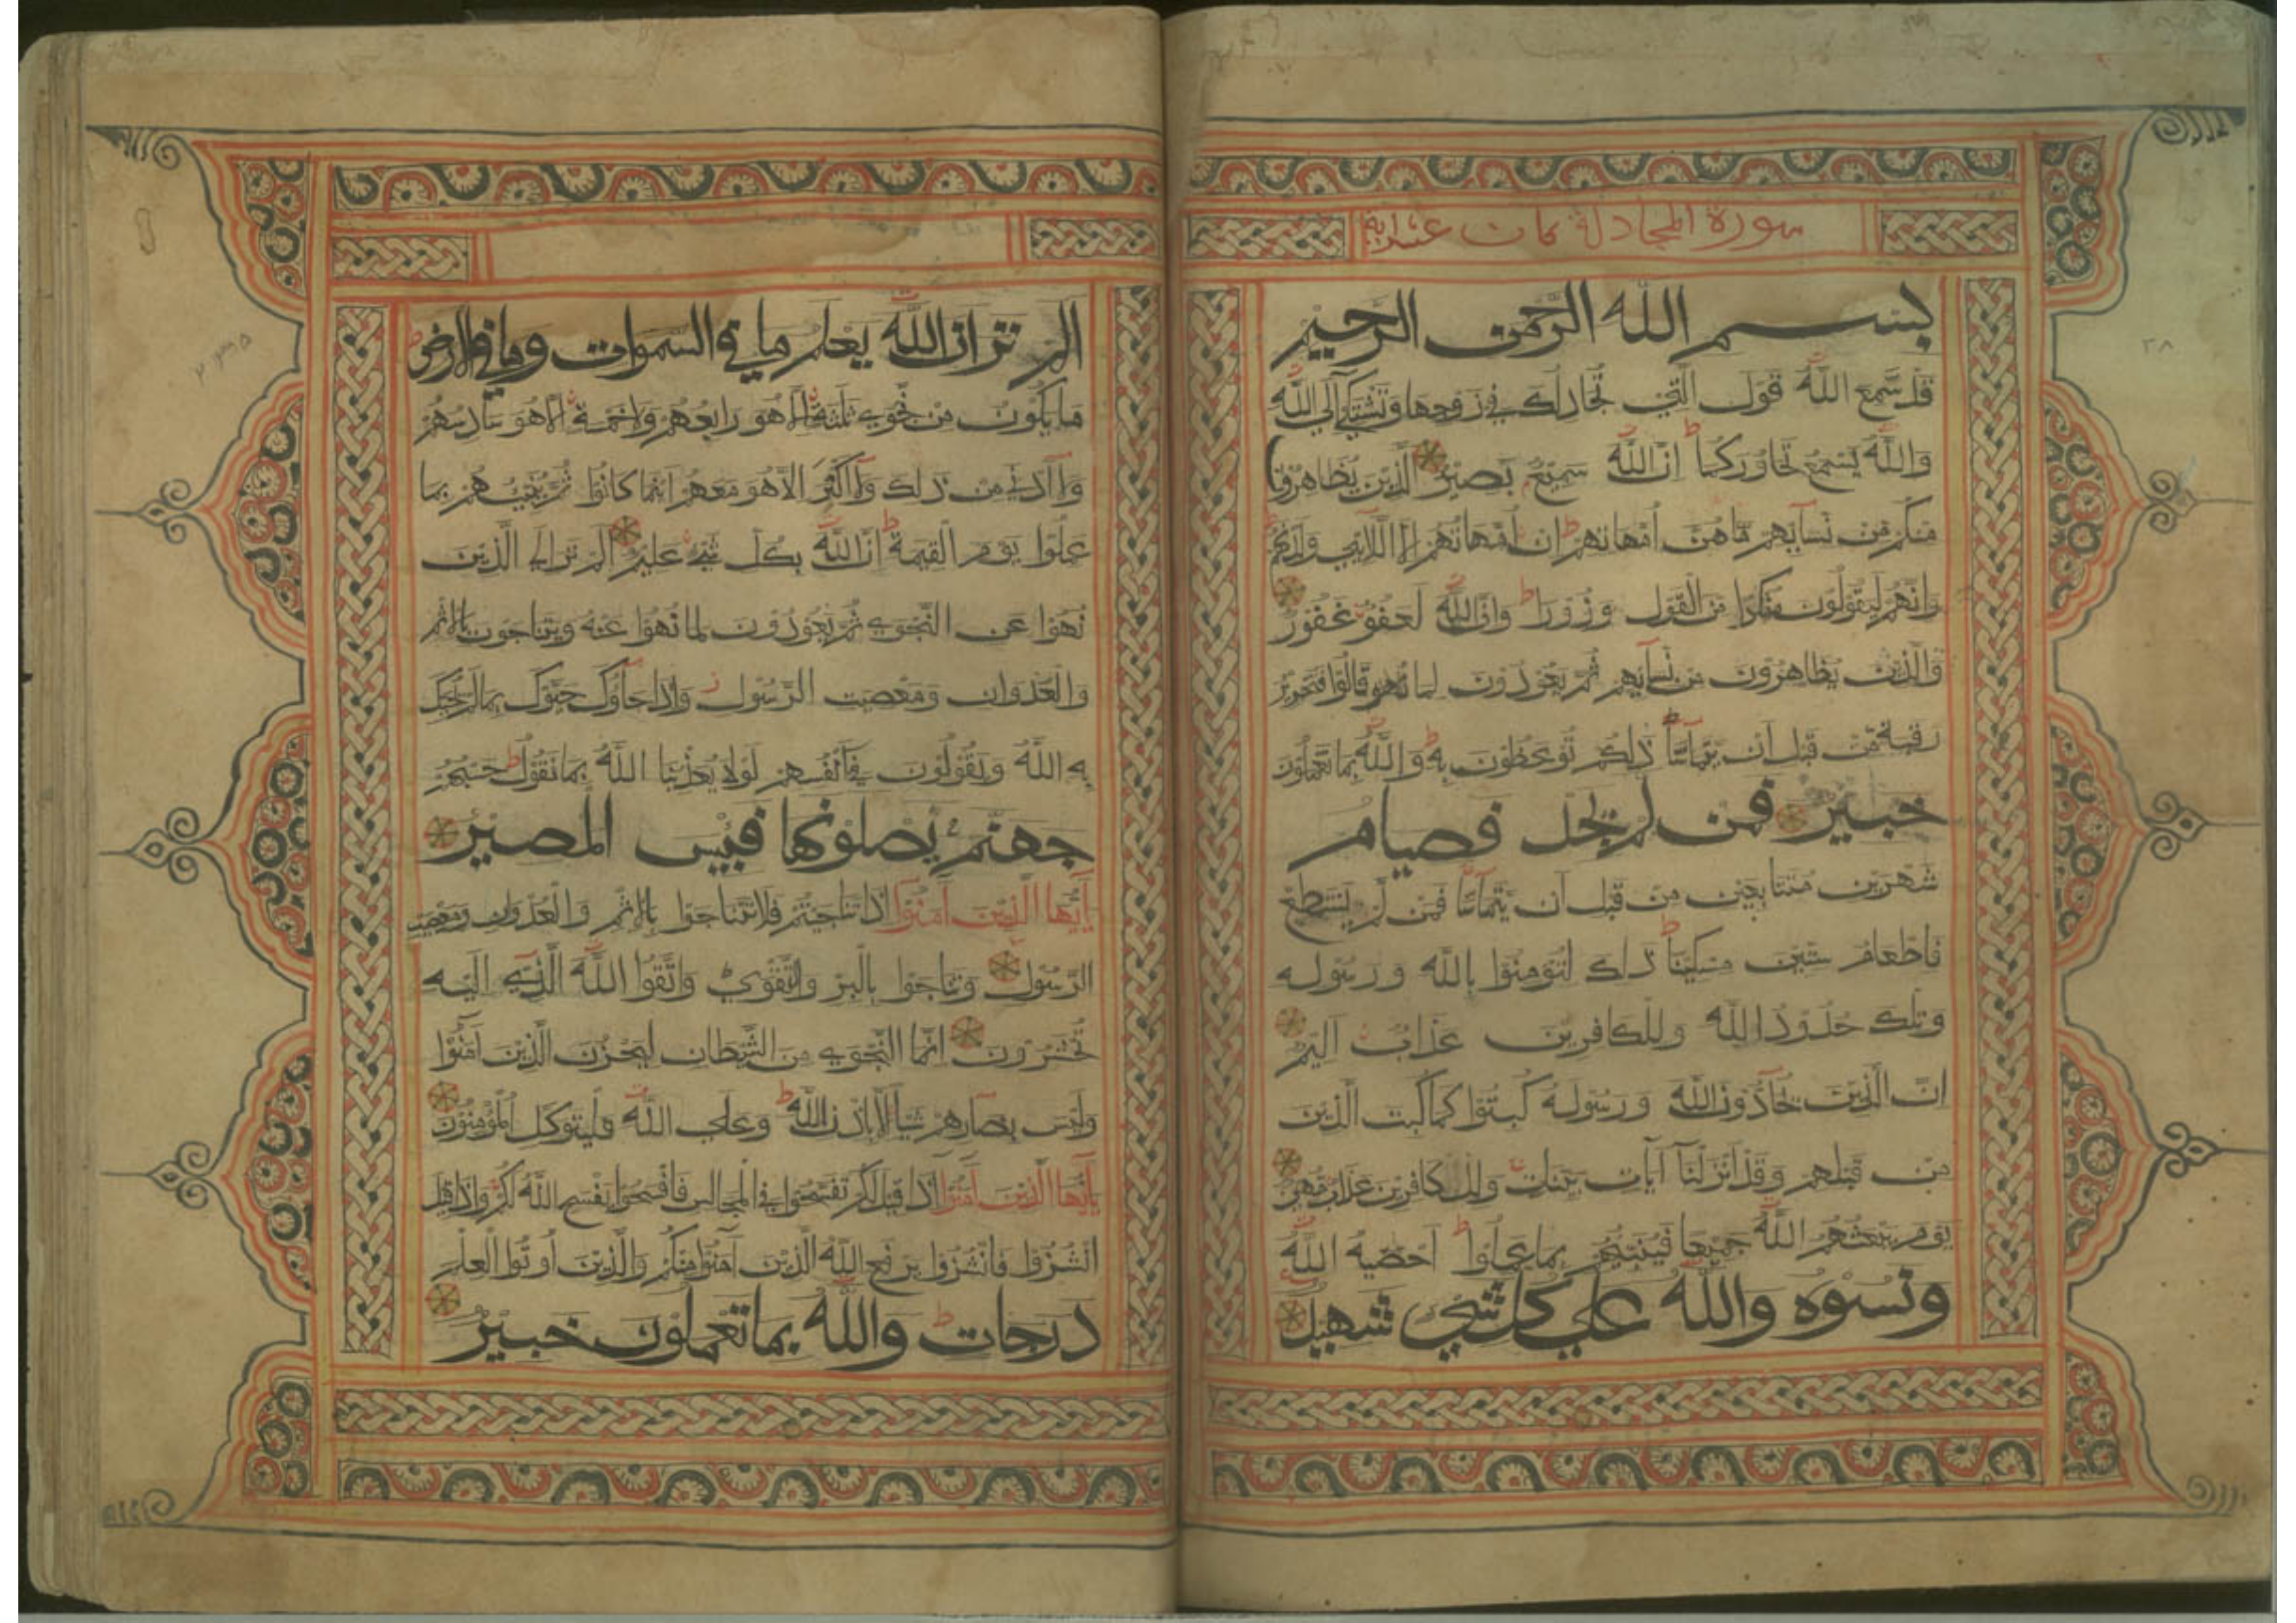 سورة المجادلة
بسم الله الرحمن الرحيم
قد سمع الله قول التي تجادلك في زوجها وتشتكي الي الله
والله يسمع تحاوركما ان الله سميع بصير الذين يظاهرون
منكم من نسآئهم ما هن امهاتهم ان امهاتهم الا اللآئي ولدنهم
وانهم ليقولون منكرا من القول وزورا وان الله لعفو غفور
والذين يظاهرون من نسآئهم ثم يعودون لما قالوا فتحرير
رقبة من قبل ان يتمآسا ذلكم توعظون به والله بما تعملون
خبير فمن لم يجد فصيام
شهرين متتابعين من قبل ان يتمآسا فمن لم يستطع
فاطعام ستين مسكينا ذلك لتؤمنوا بالله ورسوله
وتلك حدود الله وللكافرين عذاب اليم
ان الذين يحآدون الله ورسوله كبتوا كما كبت الذين
من قبلهم وقد انزلنآ آيات بينات وللكافرين عذاب مهين
يوم يبعثهم الله جميعا فينبئهم بما عملوا احصيه الله
ونسوه والله علي كل شيء شهيد
الم تر ان الله يعلم ما في السموات وما في الارض
ما يكون من نجوي ثلثة الا هو رابعهم ولا خمسة الا هو سادسهم
ولآ ادني من ذلك ولآ اكثر الا هو معهم اينما كانوا ثم ينبئهم بما
عملوا يوم القيمة ان الله بكل شيء عليم الم تر الي الذين
نهوا عن النجوي ثم يعودون لما نهوا عنه ويتناجون بالاثم
والعدوان ومعصيت الرسول واذا جآؤك حيوك بما لم يحيك
به الله ويقولون في انفسهم لولا يعذبنا الله بما نقول حسبهم
جهنم يصلونها فبئس المصير
يآايها الذين آمنوا اذا تناجيتم فلا تتناجوا بالاثم والعدوان ومعصيت
الرسول وتناجوا بالبر والتقوي واتقوا الله الذي اليه
تحشرون انما النجوي من الشيطان ليحزن الذين آمنوا
وليس بضآرهم شيئا الا باذن الله وعلي الله فليتوكل المؤمنون
يآايها الذين آمنوا اذا قيل لكم تفسحوا في المجالس فافسحوا يفسح الله لكم واذا قيل
انشزوا فانشزوا يرفع الله الذين آمنوا منكم والذين اوتوا العلم
درجات والله بما تعملون خبير